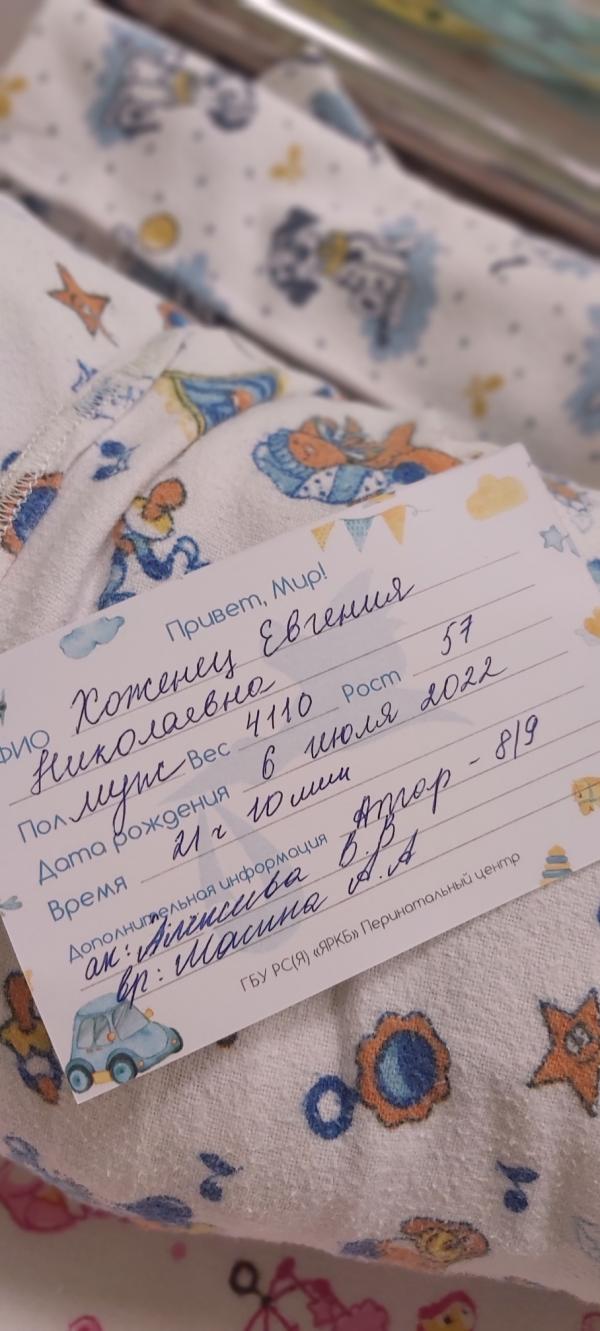 Привет, Мир!
ФИО Хоженец Евгения
Николаевна
Пол муж Вес 4110 Рост 57
Дата рождения 6 июля 2022
Время 21 ч 10 мин
Дополнительная информация Апгар - 8/9
ак: Алексеева В.В
вр: Масина А.А
ГБУ РС(Я) «ЯРКБ» Перинатальный центр